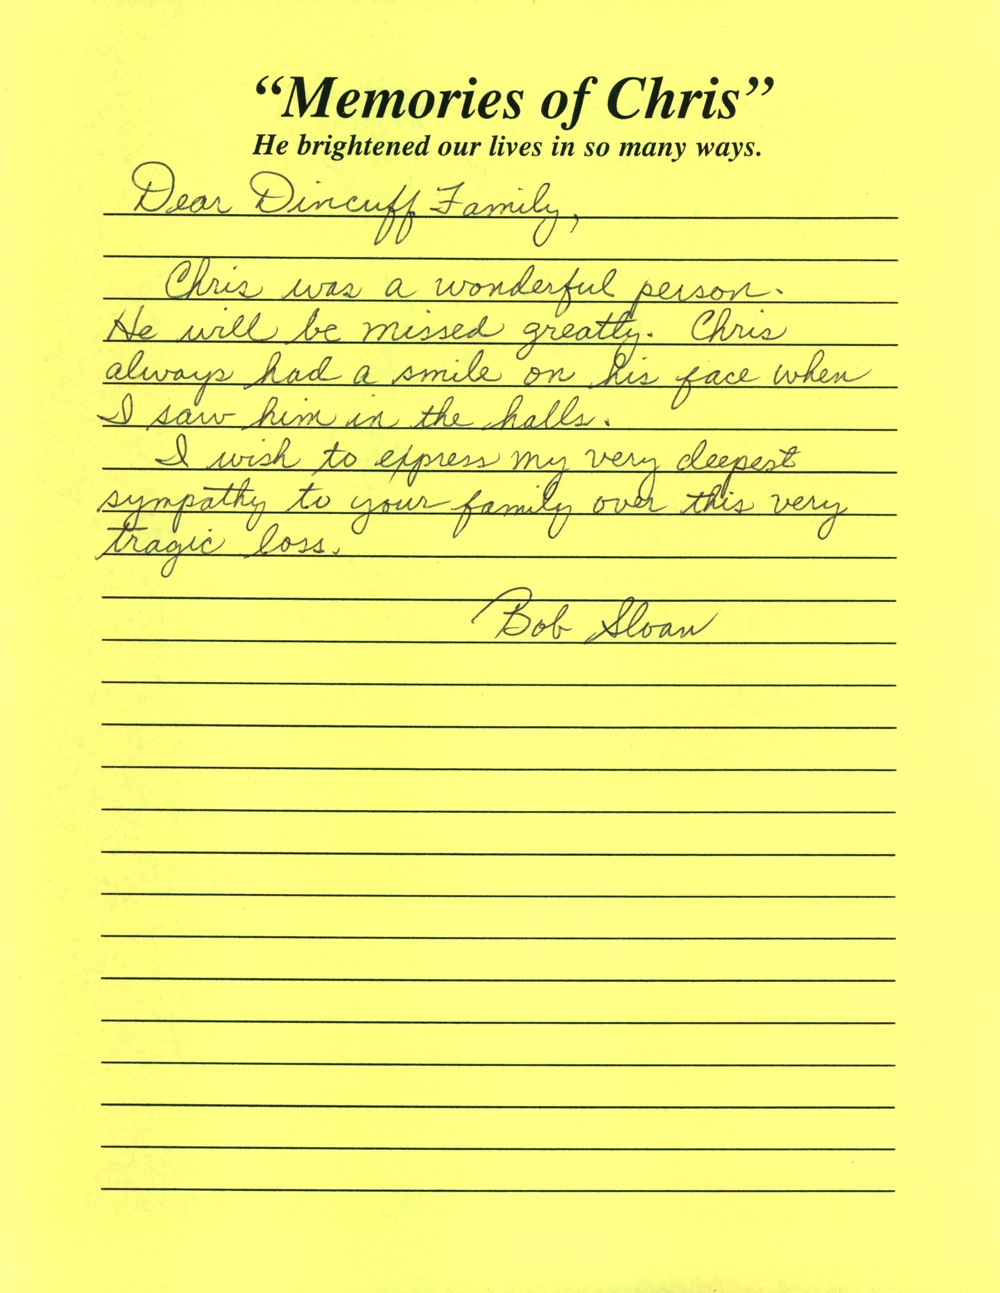 “Memories of Chris”
He brightened our lives in so many ways.
Dear Dincuff Family,
Chris was a wonderful person.
He will be missed greatly. Chris
always had a smile on his face when
I saw him in the halls.
I wish to express my very deepest
sympathy to your family over this very
tragic loss.
Bob Sloan